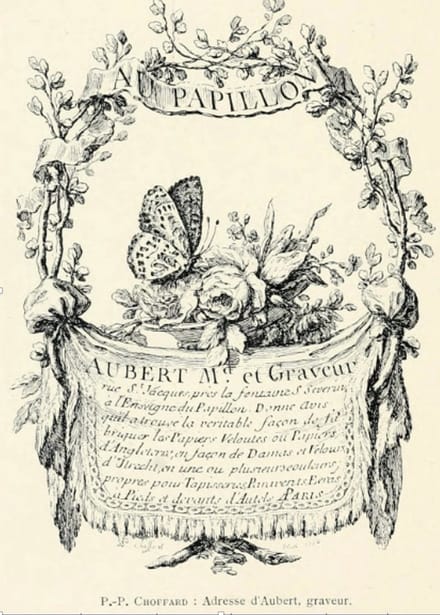 AU PAPILLON
AUBERT Md. et Graveur
rue St. Jacques, près la fontaine S. Severin,
a l'Enseigne du Papillon. Donne Avis
qu'il a trouvé la veritable façon de fa-
briquer les Papiers Veloutés ou Papiers
d'Angleterre, en façon de Damas et Velours
d'Utrecht, en une ou plusieurs couleurs,
propres pour Tapisseries, Paravents, Ecrans
a Pieds et devants d'Autels A PARIS
P.-P. CHOFFARD : Adresse d'Aubert, graveur.